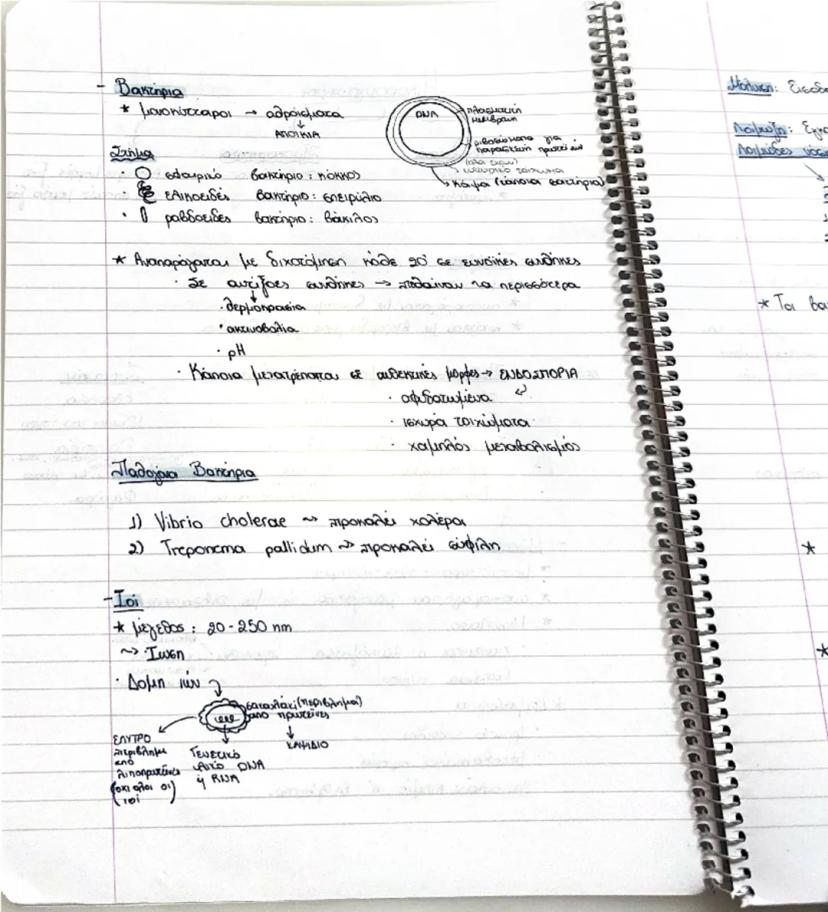 - Βακτήρια
* μονοκύτταροι → αθροίσματα
↓
ΑΠΟΙΚΙΑ
DNA
πλασματική μεμβράνη
ριβοσώματα για παρασκευή πρωτεϊνών
κυτταρικό τοίχωμα
κάψα (κάποια βακτήρια)
Σχήμα
· σφαιρικό βακτήριο: κόκκος
· ελικοειδές βακτήριο: σπειρύλιο
· ραβδοειδές βακτήριο: βάκιλος
* Αναπαράγονται με διχοτόμηση κάθε 20' σε ευνοϊκές συνθήκες
· Σε αντίξοες συνθήκες → πεθαίνουν τα περισσότερα
· θερμοκρασία
· ακτινοβολία
· pH
· Κάποια μετατρέπονται σε ανθεκτικές μορφές → ΕΝΔΟΣΠΟΡΙΑ
· αφυδατωμένα
· ισχυρά τοιχώματα
· χαμηλός μεταβολισμός
Παθογόνα Βακτήρια
1) Vibrio cholerae ~> προκαλεί χολέρα
2) Treponema pallidum ~> προκαλεί σύφιλη
- Ιοί
* μέγεθος: 20-250 nm
~> Ίωση
· Δομή ιών
καψάκι (περίβλημα)
από πρωτεΐνες
↓
ΚΑΨΙΔΙΟ
ΕΛΥΤΡΟ
περίβλημα
από
λιποπρωτεΐνες
(όχι όλοι οι
ιοί)
Γενετικό
υλικό DNA
ή RNA
Μόλυνση: Είσοδο
Λοίμωξη: Εγκ
Λοιμώδεις νόσο
* Τα βα
*
*